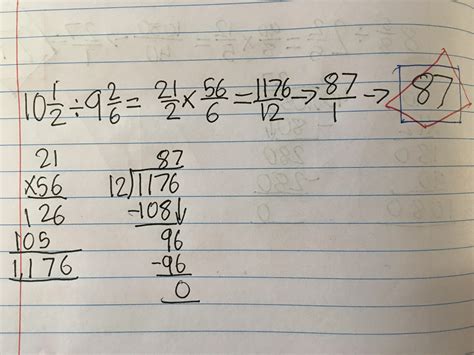 10 1/2 ÷ 9 2/6 = 21/2 × 56/6 = 1176/12 → 87/1 → 87
21
×56
126
105
1,176
87
12)1176
-108↓
96
-96
0